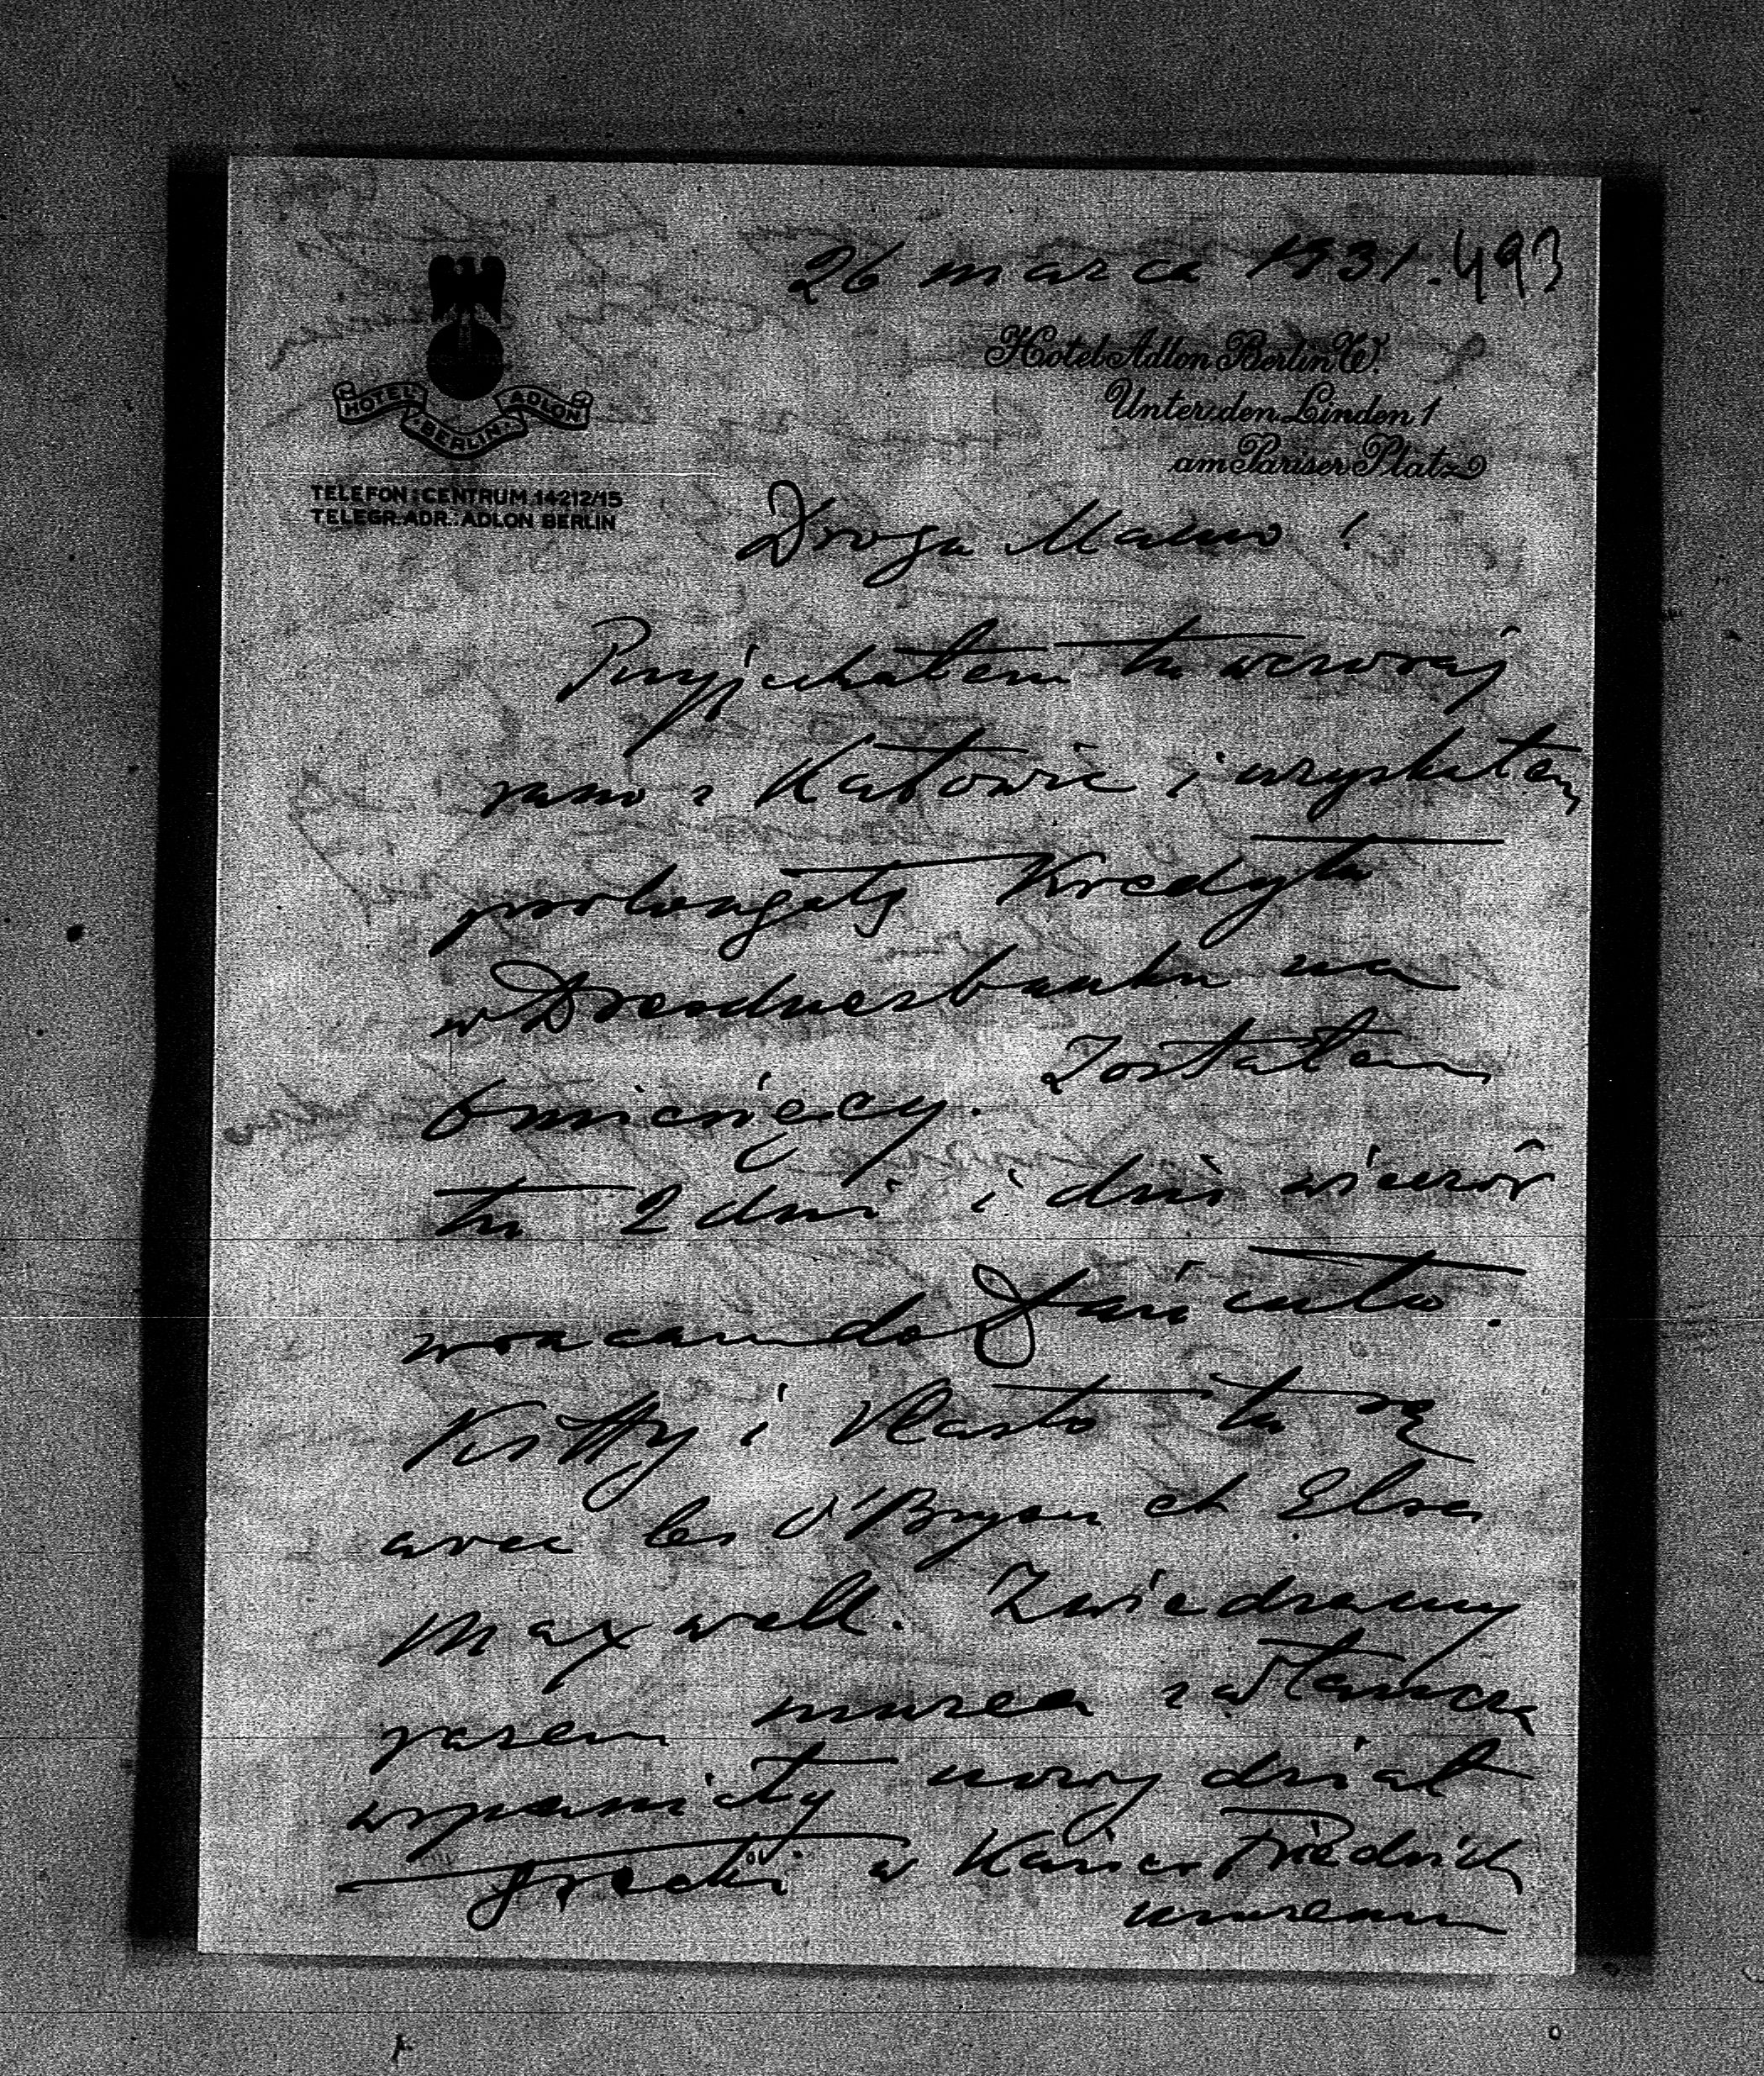 26 marca 1931. 493
HOTEL ADLON
BERLIN
Hotel Adlon Berlin W.
Unter den Linden 1
am Pariser Platz
TELEFON: CENTRUM 14212/15
TELEGR. ADR.: ADLON BERLIN
Droga Mamo!
Przyjechałem tu wczoraj
rano z Katowic i uzyskałem
prolongatę Kredytu
w Dresdnerbanku na
6 miesięcy. Zostałem
tu 2 dni i dziś wieczór
wracam do Łańcuta.
Kitty i Vlasto tu są
avec les O'Bryen et Elsa
Maxwell. Zwiedzamy
razem muzea zwłaszcza
wspaniały nowy dział
grecki w Kaiser Friedrich
muzeum